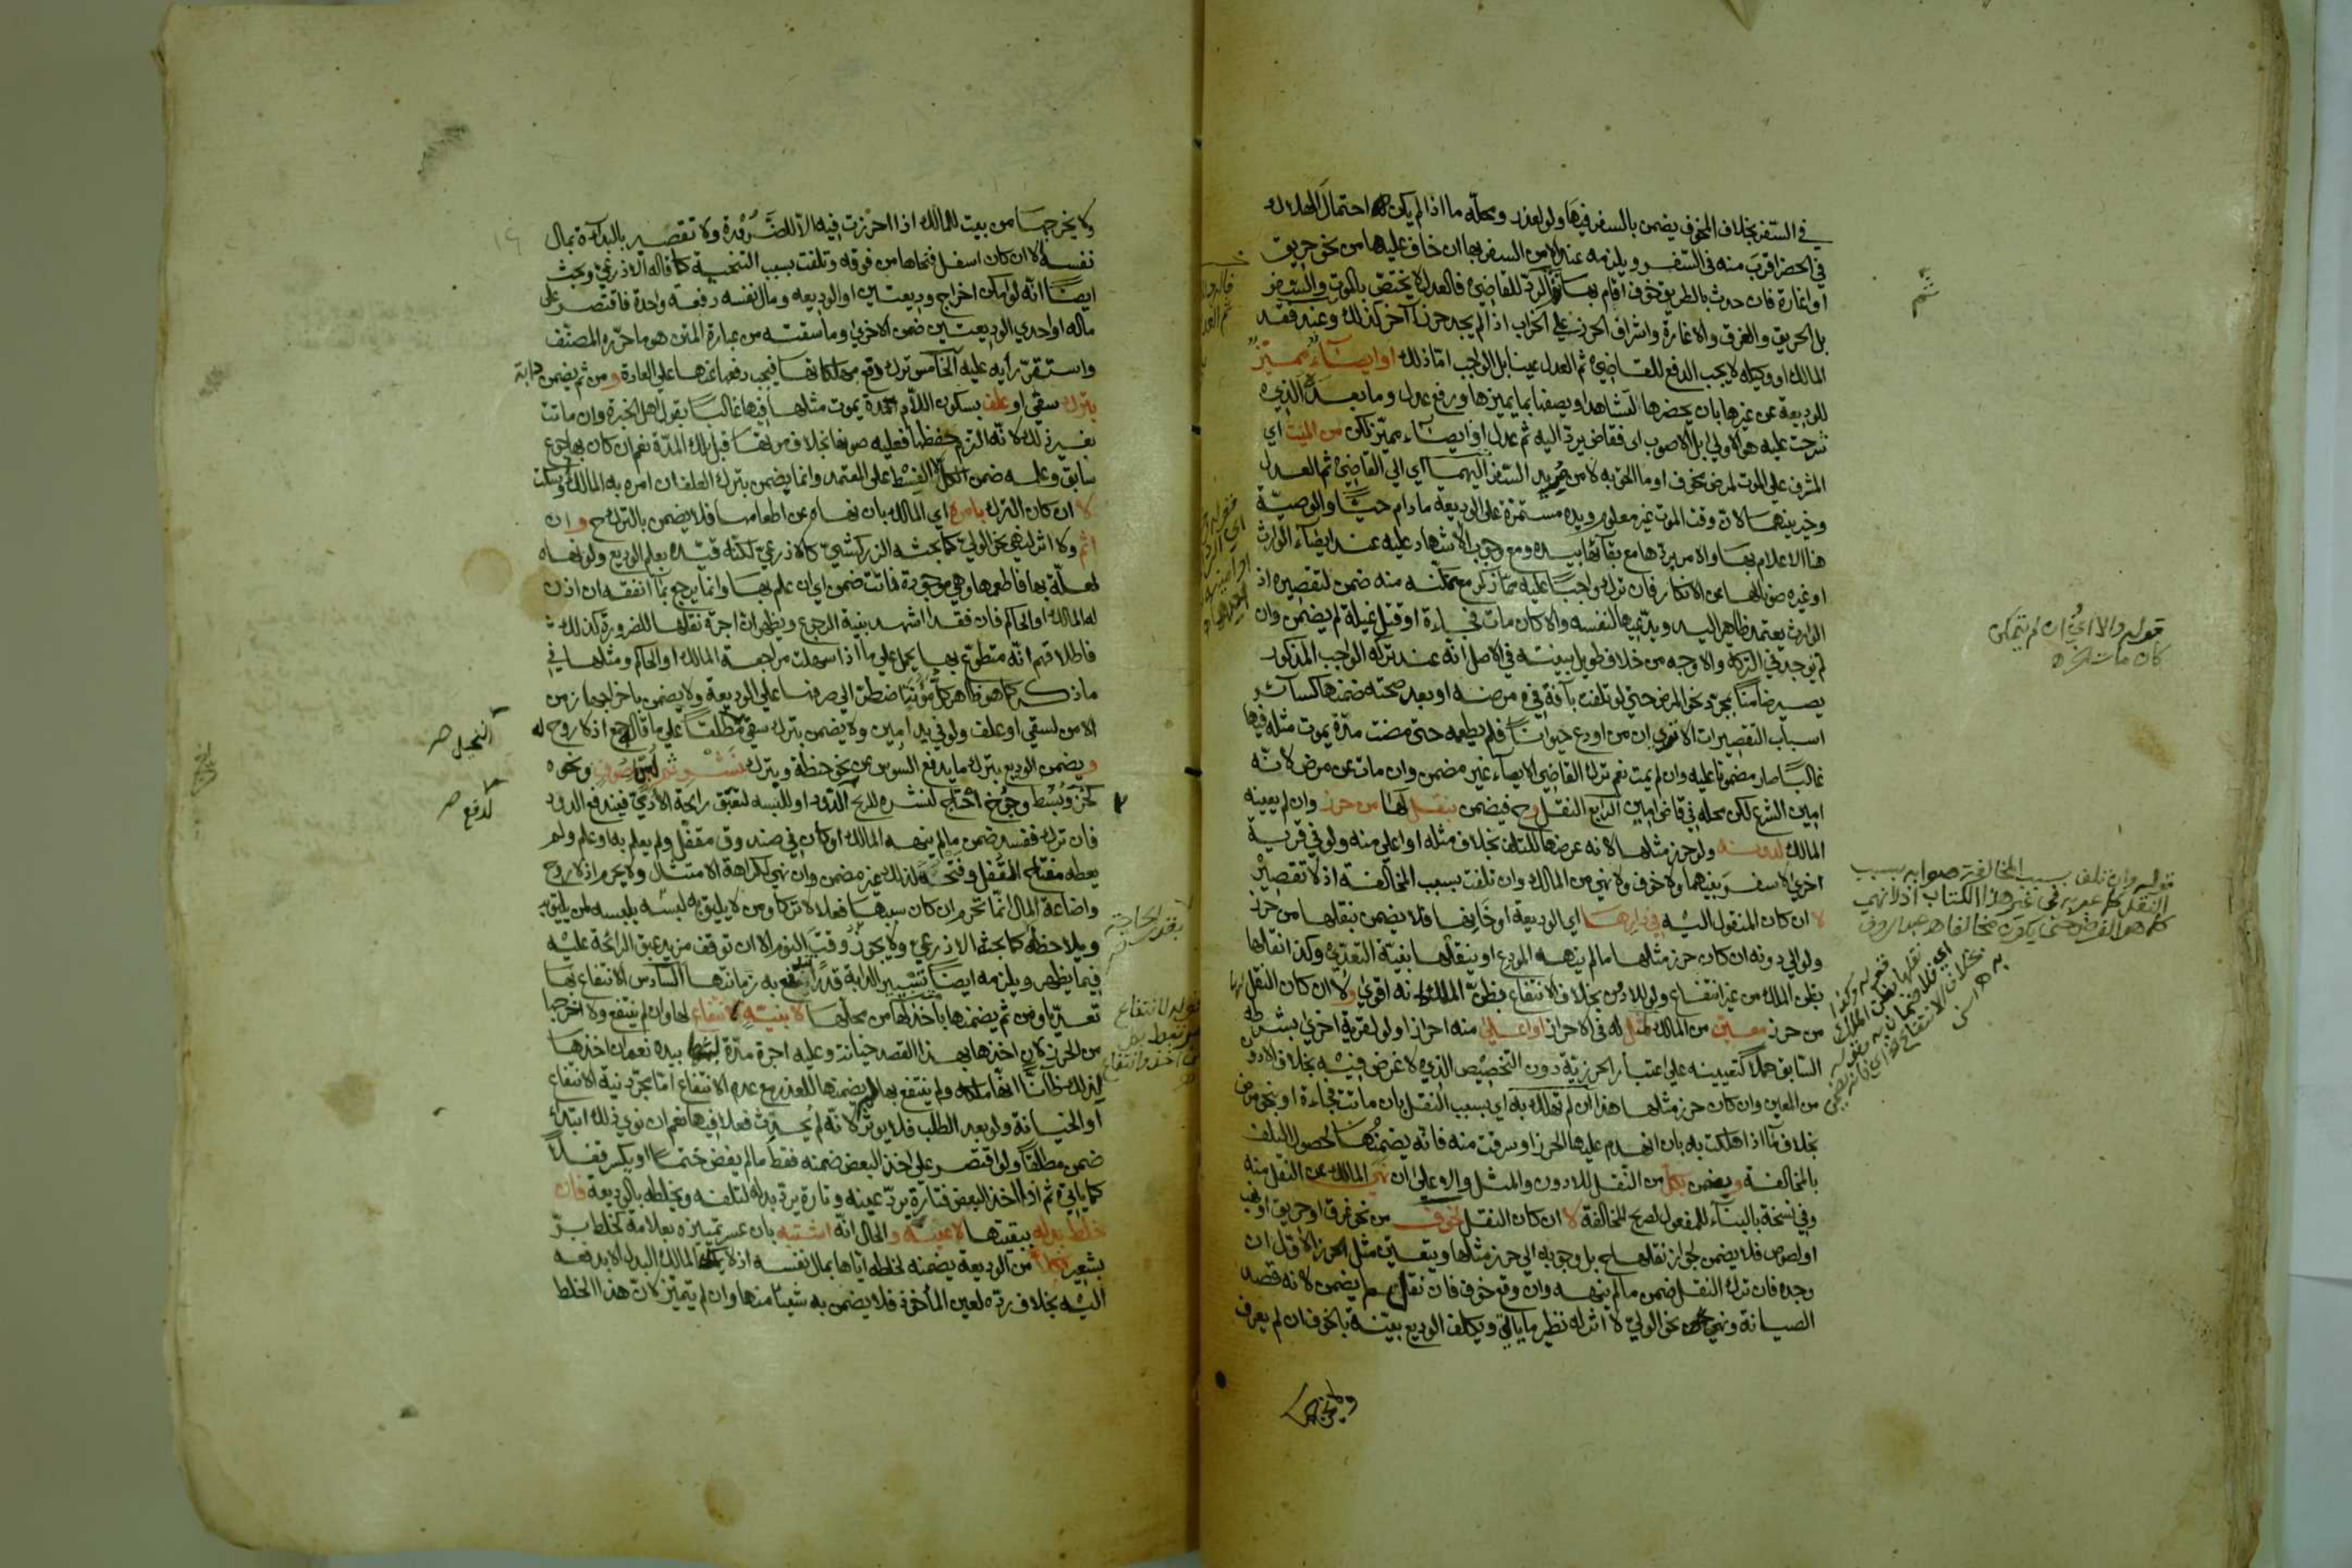 في السفر بخلاف المخوف يضمن بالسفر فيها ولو لعذر ومحله ما اذا لم يكن احتمال الهلاك
في الحضر اقرب منه في السفر ويلزمه عند الامن السفر بها ان خاف عليها من نحو حريق
او اغارة فان حدث بالطريق خوف اقام بها كالرد للقاضي فالعدل لا يختص بالموت والسفر
بل الحريق والغرق والاغارة واشراف الحرز على الخراب اذا لم يجد حرزا آخر كذلك وعند فقد
المالك او وكيله لا يجب الدفع للقاضي ثم العدل عينا بل الواجب اما ذلك او ايصاء مميز
للوديعة عن غيرها بان يحضرها الشاهد او يصفها بما يميزها ورفع عدل وما بعده الذي
شرحت عليه هو الاولى بل الاصوب اى فقاض يرد اليه ثم عدل او ايصاء مميز لكن من الميت اي
المشرف على الموت لمرض مخوف او ما الحق به لا من مريد السفر اليهما اي الى القاضي ثم العدل
وخير بينهما لان وقت الموت غير معلوم ويده مستمرة على الوديعة ما دام حيا والوصية
هنا الاعلام بها والامر بردها مع بقائها بيده ومع وجوب الاشهاد عليه عند ايصاء الوارث
او غيره صونا لها عن الانكار فان ترك واجبا عليه مما ذكر مع تمكنه منه ضمن لتقصيره اذ
الوارث يعتمد ظاهر اليد ويدعيها لنفسه والا كان مات فجاءة او قتل غيلة لم يضمن وان
لم توجد في التركة والاوجه من خلاف طويل بينته في الاصل انه عند تركه الواجب المذكور
يصير ضامنا بمجرد نحو المرض حتى لو تلفت بآفة في مرضه او بعد صحته ضمنها كسائر
اسباب التقصيرات الا ترى ان من اودع حيوانا فلم يطعمه حتى مضت مدة يموت مثله فيها
غالبا صار مضمونا عليه وان لم يمت نعم ترك القاضي الايصاء غير مضمن وان مات عن مرض لانه
امين الشرع لكن محله في قاض امين الرابع النقل وح فيضمن بنقل لها من حرز وان لم يعينه
المالك لدونه ولو حرز مثلها لانه عرضها للتلف بخلاف مثله او اعلى منه ولو في قرية
اخرى لا سفر بينهما ولا خوف ولا نهي من المالك وان تلفت بسبب المخالفة اذ لا تقصير
لا ان كان المنقول اليه في دارها اي الوديعة او خانها فلا يضمن بنقلها من حرز
ولو الى دونه ان كان حرز مثلها ما لم ينهه المودع او ينقلها بنية التعدي وكذا انقالها
بظن الملك من غير انتفاع ولو للادون بخلاف الانتفاع بظن الملك لانه اقوى ولا ان كان النقل لها
من حرز معين من المالك لمثل له في الاحراز او اعلى منه احرازا ولو لقرية اخرى بشرطه
السابق حملا لتعيينه على اعتبار الحرزية دون التخصيص الذي لا غرض فيه بخلاف الادون
من المعين وان كان حرز مثلها هذا ان لم تهلك به اي بسبب النقل بان ماتت فجاءة او بنحو مرض
بخلاف ما اذا هلكت به بان انهدم عليها الحرز او سرقت منه فانه يضمنها لحصول التلف
بالمخالفة ويضمن بكل من النقل للادون والمثل والاعلى ان نهي المالك عن النقل منه
وفي نسخة بالبناء للمفعول لصريح المخالفة لا ان كان النقل لخوف من نحو غرق او حريق او نهب
او لصوص فلا يضمن لجواز نقلها ح بل وجوبه الى حرز مثلها ويتعين مثل الحرز الاول ان
وجده فان ترك النقل ضمن ما لم ينهه وان وقع خوف فان نقل لم يضمن لانه قصد
الصيانة ونهي نحو الولي لا اثر له نظير ما ياتي ويكلف الوديع بينة بالخوف ان لم يعرف
ولا يخرجها
قوله والا اي ان لم يتمكن
كان مات فجاءة
قوله وان تلف بسبب المخالفة صوابه بسبب
النقل كما عبر به في غير هذا الكتاب اذ لا نهي
ولا يخرجها من بيت للمالك اذا احرزت فيه الا للضرورة ولا تقصير بالبداءة بمال
نفسه لا ان كان اسفل فنحاها من فوقه وتلفت بسبب التنحية كما قاله الاذرعي وبحث
ايضا انه لو امكن اخراج وديعتين او الوديعه ومال نفسه دفعة واحدة فاقتصر على
ماله او احدى الوديعتين ضمن الاخرى وما سقته من عبارة المتن هو ما حرره المصنف
واستقر رأيه عليه الخامس ترك دفع مهلكاتها فيجب دفعها عنها على العادة ومن ثم يضمن دابة
بترك سقي او علف بسكون اللام مدة يموت مثلها فيها غالبا بقول اهل الخبرة وان ماتت
بغير ذلك لانه التزم حفظها فعليه صونها بخلاف موتها قبل تلك المدة نعم ان كان بها جوع
سابق وعلمه ضمن الكل لا القسط على المعتمد وانما يضمن بترك العلف ان امره به المالك او سكت
لا ان كان الترك بامره اي المالك بان نهاه عن اطعامها فلا يضمن بالترك ح وان
اثم ولا اثر لنهي نحو الولي كما بحثه الزركشي كالاذرعي لكنه قيده بعلم الوديع ولو نهاه
لعلة بها فاطعمها وهي موجودة فماتت ضمن اي ان علم بها وانما يرجع بما انفقه ان اذن
له المالك او الحاكم فان فقد اشهد بنية الرجوع ويظهر ان اجرة نقلها للضرورة كذلك
فاطلاقهم انه متطوع بها يحمل على ما اذا سهلت مراجعة المالك او الحاكم ومثلها في
ماذكر كما هو ظاهر كل مؤنة اضطر الى صرفها على الوديعة ولا يضمن باخراجها زمن
الامن لسقي او علف ولو في يد امين ولا يضمن بترك سقي مطلقا على ما قاله جمع اذ لا روح له
ويضمن الوديع بترك ما يدفع السوس عن نحو حنطة وبترك نشر ثم لبس صوف ونحوه
كخز وبسط وجوخ احتاج لنشره للريح الدود او للبسه لتعبق رائحة الآدمي فيندفع الدود
فان ترك ففسد ضمن ما لم ينهه المالك او كان في صندوق مقفل ولم يعلم به او علم ولم
يعطه مفتاح القفل وفتحه لذلك غير مضمن وان نهي لكراهة الامتثال ولا يحرم اذ لا روح
واضاعة المال انما تحرم ان كان سببها فعلا لا تركا ومن لا يليق به لبسه يلبسه لمن يليق به
ويلاحظه كما بحثه الاذرعي ولا يجوز وقت النوم الا ان توقف مزيد عبق الرائحة عليه
فيما يظهر ويلزمه ايضا تسيير الدابة قدرا تندفع به زمانتها السادس الانتفاع بها
تعديا ومن ثم يضمنها باخذ لها من محلها لا بنية الانتفاع لها وان لم ينتفع ولا اخرجها
من الحرز لان اخذها بهذا القصد خيانة وعليه اجرة مدة بيده نعم ان اخذها
لذلك ظانا انها ملكه ولم ينتفع بها لم يضمنها للعذر مع عدم الانتفاع اما بمجرد نية الانتفاع
او الخيانة ولو بعد الطلب فلا يوثر لانه لم يحدث فعلا فيها نعم ان نوى ذلك ابتداء
ضمن مطلقا ولو اقتصر على اخذ البعض ضمنه فقط ما لم يفض ختما او يكسر قفلا
كما ياتي ثم اذا اخذ البعض فتارة يرد عينه وتارة يرد بدله لتلفه ويخلطه بالوديعة فان
خلط بدله ببقيتها لا عينه والحال انه اشتبه بان عسر تمييزه بعلامة كخلط بر
بشعير فكلا من الوديعة يضمنه لخلطه اياها بمال نفسه اذ لا يملك المالك البدل الا بدفعه
اليه بخلاف رده لعين المأخوذ فلا يضمن به شيئا منها وان لم يتميز لان هذا الخلط
النخيل صح
لدفع صح
بقدر الحاجة